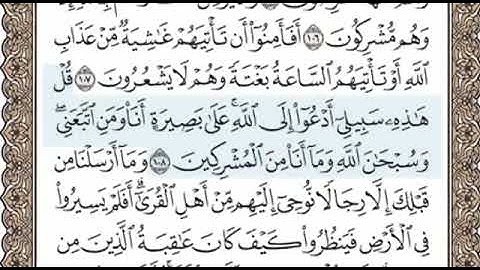 وَهُم مُّشْرِكُونَ ١٠٦ أَفَأَمِنُوٓا۟ أَن تَأْتِيَهُمْ غَٰشِيَةٌ مِّنْ عَذَابِ
ٱللَّهِ أَوْ تَأْتِيَهُمُ ٱلسَّاعَةُ بَغْتَةً وَهُمْ لَا يَشْعُرُونَ ١٠٧ قُلْ
هَٰذِهِۦ سَبِيلِىٓ أَدْعُوٓا۟ إِلَى ٱللَّهِ ۚ عَلَىٰ بَصِيرَةٍ أَنَا۠ وَمَنِ ٱتَّبَعَنِى ۖ
وَسُبْحَٰنَ ٱللَّهِ وَمَآ أَنَا۠ مِنَ ٱلْمُشْرِكِينَ ١٠٨ وَمَآ أَرْسَلْنَا مِن
قَبْلِكَ إِلَّا رِجَالًا نُّوحِىٓ إِلَيْهِم مِّنْ أَهْلِ ٱلْقُرَىٰٓ ۗ أَفَلَمْ يَسِيرُوا۟
فِى ٱلْأَرْضِ فَيَنظُرُوا۟ كَيْفَ كَانَ عَٰقِبَةُ ٱلَّذِينَ مِن